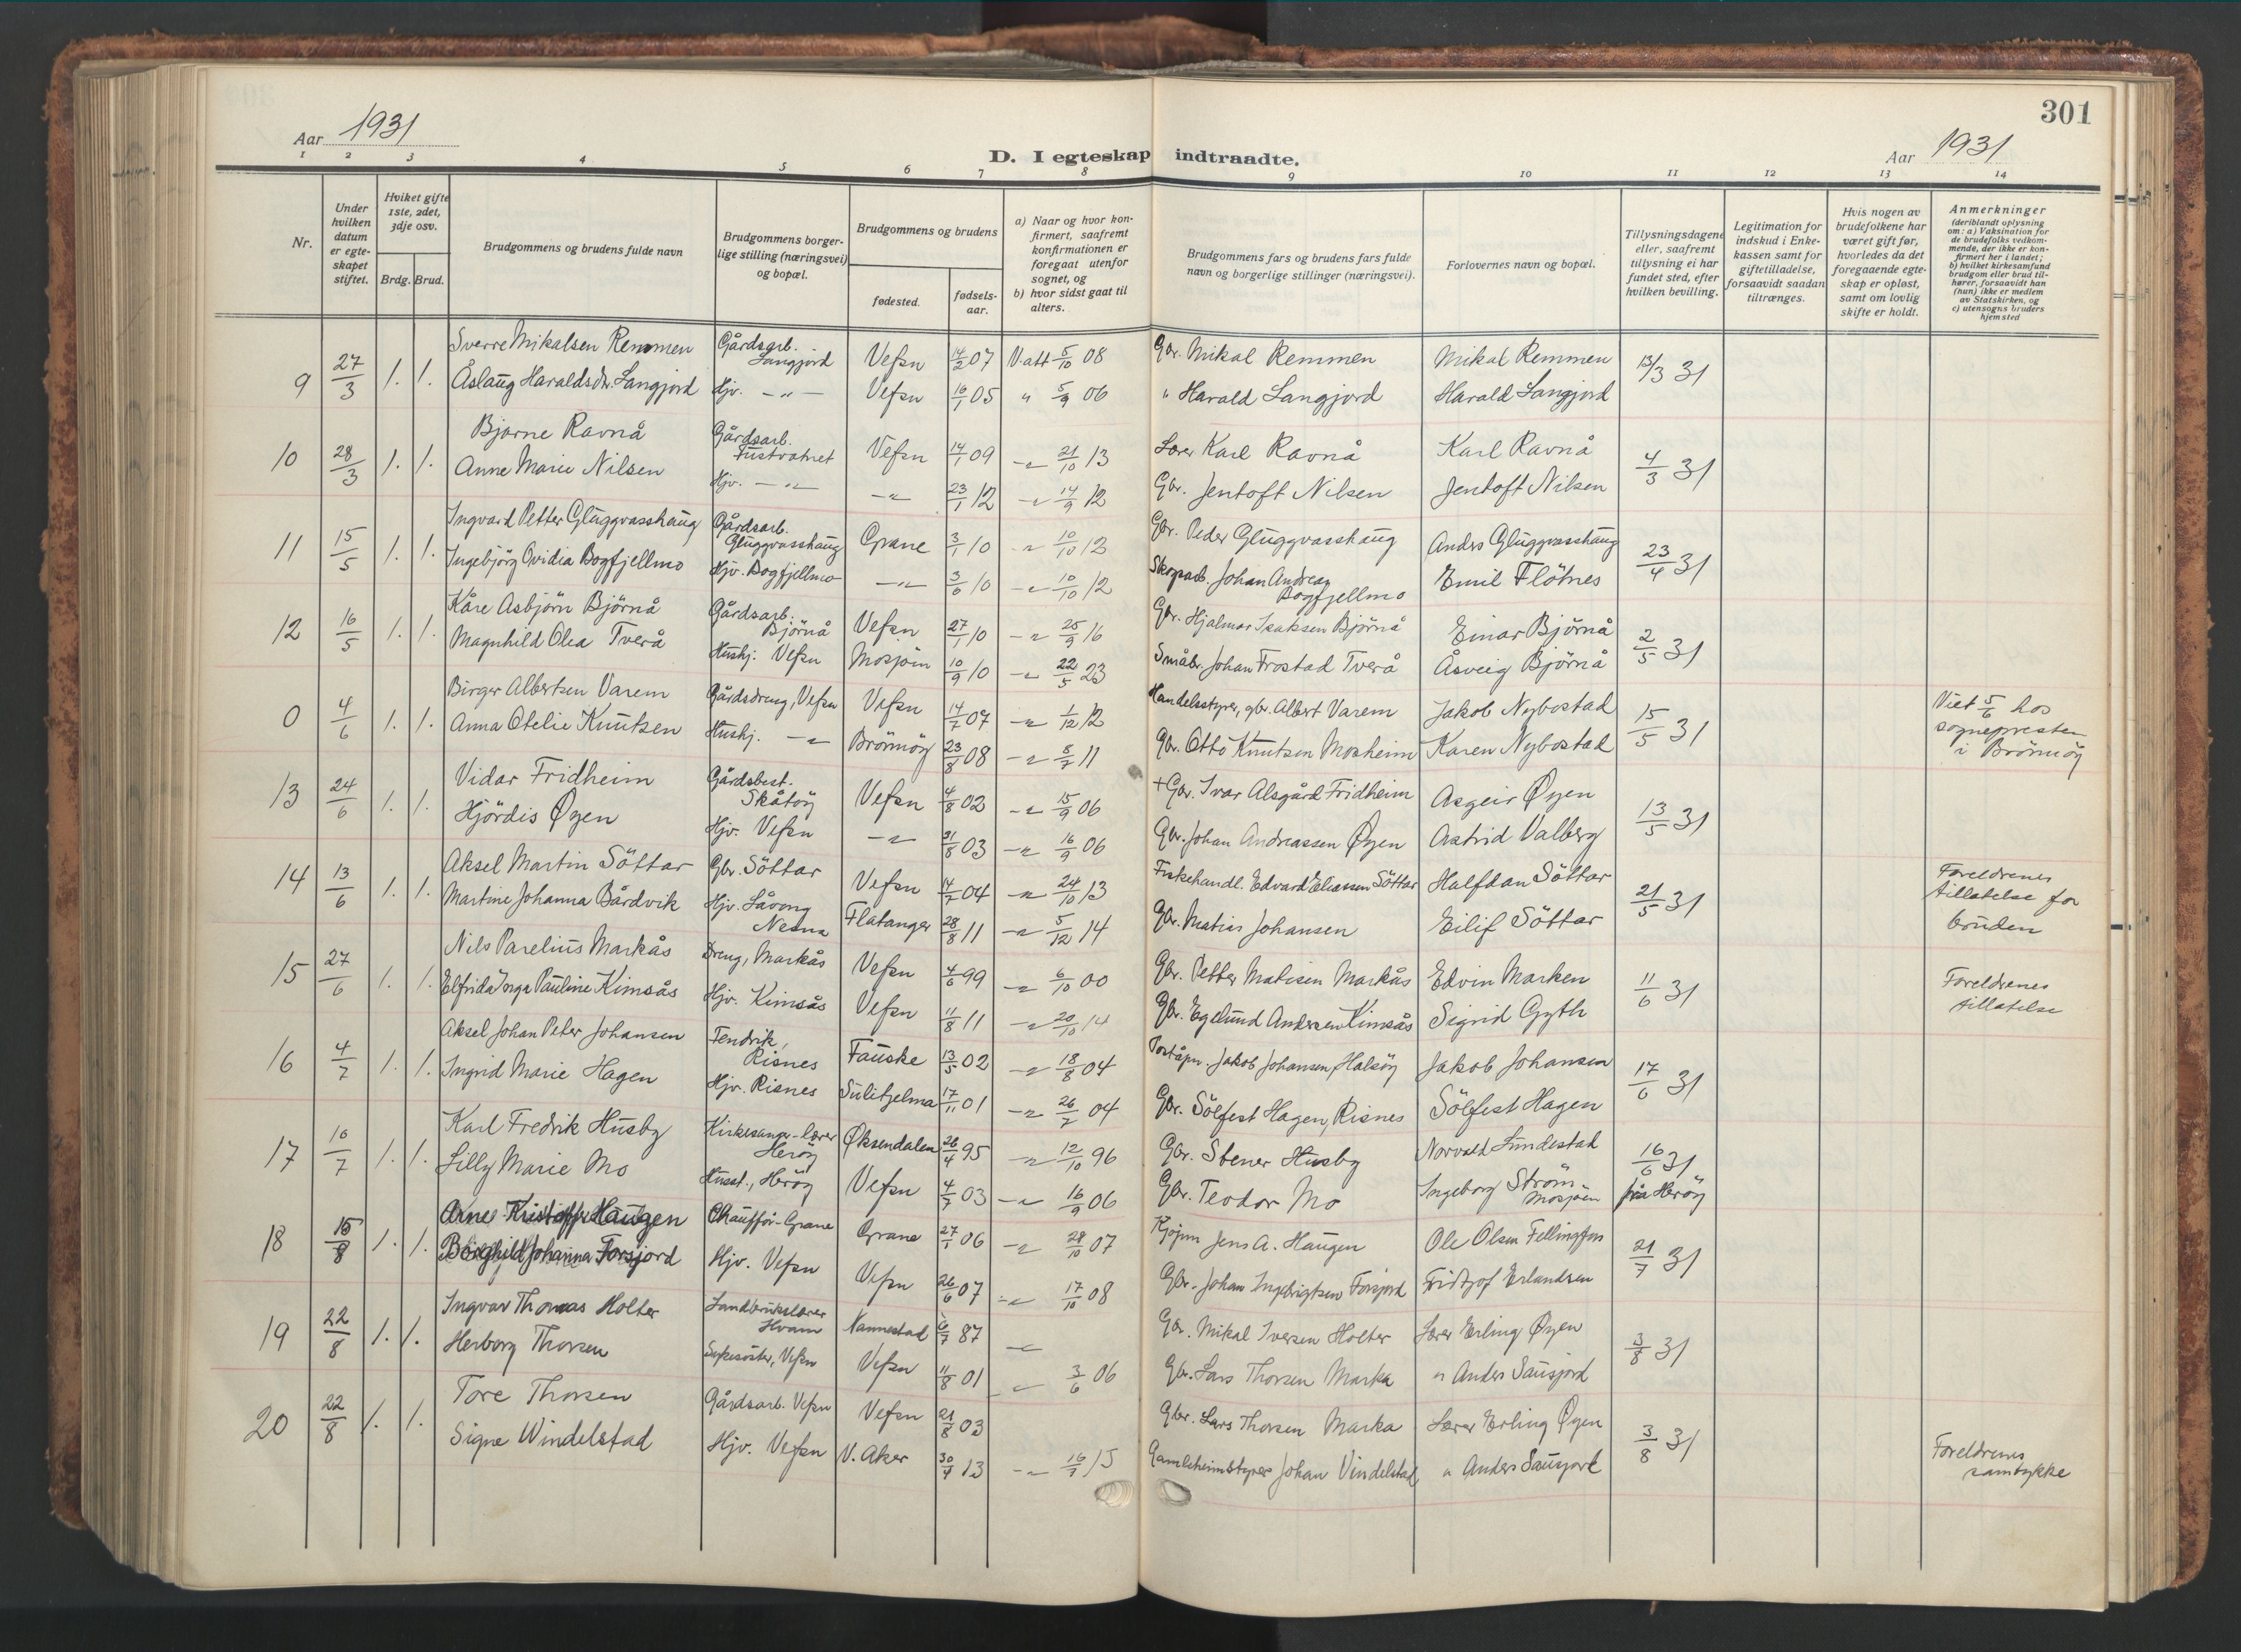 301
Aar 1931
D. I egteskap indtraadte.
Aar 1931
1 2 3 4 5 6 7 8 9 10 11 12 13 14
Nr.
Under hvilken datum er egteskapet stiftet.
Hviket gifte 1ste, 2det, 3dje osv.
Brdg. Brud.
Brudgommens og brudens fulde navn
Brudgommens borgerlige stilling (næringsvei) og bopæl.
Brudgommens og brudens
fødested.
fødselsaar.
a) Naar og hvor konfirmert, saafremt konfirmationen er foregaat utenfor sognet, og
b) hvor sidst gaat til alters.
Brudgommens fars og brudens fars fulde navn og borgerlige stillinger (næringsvei).
Forlovernes navn og bopæl.
Tillysningsdagene eller, saafremt tillysning ei har fundet sted, efter hvilken bevilling.
Legitimation for indskud i Enkekassen samt for giftetilladelse, forsaavidt saadan tiltrænges.
Hvis nogen av brudefolkene har været gift før, hvorledes da det foregaaende egteskap er opløst, samt om lovlig skifte er holdt.
Anmerkninger
(deriblandt oplysning om: a) Vaksination for de brudefolks vedkommende, der ikke er konfirmert her i landet; b) hvilket kirkesamfund brudgom eller brud tilhører, forsaavidt han (hun) ikke er medlem av Statskirken, og c) utensogns bruders hjemsted
9 27/3 1. 1. Sverre Mikalsen Remmen Gårdsarb. Langjord Vefsn 14/2 07 V.att 5/10 08 Gbr. Mikal Remmen Mikal Remmen 13/3 31
Åslaug Haraldsdr. Langjord Hjv. -"- Vefsn 16/1 05 " 5/9 06 " Harald Langjord Harald Langjord
10 28/3 1. 1. Bjarne Ravnå Gårdsarb. Fustvatnet Vefsn 14/1 09 -"- 21/10 13 Lærer Karl Ravnå Karl Ravnå 4/3 31
Anne Marie Nilsen Hjv. -"- -"- 23/1 12 -"- 14/9 12 Gbr. Jentoft Nilsen Jentoft Nilsen
11 15/5 1. 1. Ingvard Petter Gluggvasshaug Gårdsarb. Gluggvasshaug Grane 3/1 10 -"- 10/10 12 Gbr. Peder Gluggvasshaug Anders Gluggvasshaug 23/4 31
Ingebjörg Ovidia Bogfjellmo Hjv. Bogfjellmo -"- 3/6 10 -"- 10/10 12 Skogsarb. Johan Andreas Bogfjellmo Emil Flötnes
12 16/5 1. 1. Kåre Asbjörn Björnå Gårdsarb. Björnå Vefsn 27/1 10 -"- 25/9 16 Gbr. Hjalmar Isaksen Björnå Einar Björnå 2/5 31
Magnhild Olea Tverå Hushj. Vefsn Mosjöen 10/9 10 -"- 22/5 23 Småbr. Johan Frostad Tverå Åsveig Björnå
0 4/6 1. 1. Birger Albertsen Varem Gårdsdreng, Vefsn Vefsn 14/7 07 -"- 1/12 12 Handelsstyrer, gbr. Albert Varem Jakob Nybostad 15/5 31 Viet 5/6 hos sognepresten i Brönnöy
Anna Otelie Knutsen Hushj. -"- Brönnöy 23/8 08 -"- 8/7 11 Gbr. Otto Knutsen Mosheim Karen Nybostad
13 24/6 1. 1. Vidar Fridheim Gårdsbest. Skåtöy Vefsn 4/8 02 -"- 15/9 06 +Gbr. Ivar Alsgård Fridheim Asgeir Øyen 13/5 31
Hjördis Øyen Hjv. Vefsn -"- 31/8 03 -"- 16/9 06 Gbr. Johan Andreassen Øyen Astrid Valberg
14 13/6 1. 1. Aksel Martin Söttar Gbr. Söttar Vefsn 14/7 04 -"- 24/10 13 Fiskehandl. Edvard Eliassen Söttar Halfdan Söttar 21/5 31 Foreldrenes tillatelse for bruden
Martine Johanna Bårdvik Hjv. Låvong Nesna Flatanger 28/8 11 -"- 5/12 14 Gbr. Matias Johansen Eilif Söttar
15 27/6 1. 1. Nils Parelius Markås Dreng, Markås Vefsn 4/6 99 -"- 6/10 00 Gbr. Petter Matisen Markås Edvin Marken 11/6 31 Foreldrenes tillatelse
Elfrida Inga Pauline Kimsås Hjv. Kimsås Vefsn 11/8 11 -"- 20/10 14 Gbr. Egelund Andersen Kimsås Sigrid Gyth
16 4/7 1. 1. Aksel Johan Peter Johansen Fendrik, Risnes Fauske 13/5 02 -"- 18/8 04 Poståpn. Jakob Johansen, Halsöy Jakob Johansen 17/6 31
Ingrid Marie Hagen Hjv. Risnes Sulitjelma 17/11 01 -"- 26/7 04 Gbr. Sölfest Hagen, Risnes Sölfest Hagen
17 16/7 1. 1. Karl Fredrik Husby Kirkesanger-lærer Heröy Øksendalen 26/4 95 -"- 12/10 96 Gbr. Stener Husby Norvald Lundestad 16/6 31 fra Heröy
Lilly Marie Mo Husst., Heröy Vefsn 4/7 03 -"- 16/9 06 Gbr. Teodor Mo Ingeborg Ström Mosjöen
18 15/8 1. 1. Arne Kristoffer Haugen Chaufför-Grane Grane 27/1 06 -"- 28/10 07 Kjøpm Jens A. Haugen Ole Olsen Fellingfors 21/7 31
Borghild Johanna Forsjord Hjv. Vefsn Vefsn 26/6 07 -"- 17/10 08 Gbr. Johan Ingebrigtsen Forsjord Fridtjof Erlandsen
19 22/8 1. 1. Ingvar Thomas Holter Landbrukslærer Hvam Nannestad 6/7 87 -"- Gbr. Mikal Iversen Holter Lærer Erling Øyen 3/8 31
Herborg Thorsen Sykesöster, Vefsn Vefsn 11/8 01 -"- 3/6 06 Gbr. Lars Thorsen Marka " Anders Sausjord
20 22/8 1. 1. Tore Thorsen Gårdsarb. Vefsn Vefsn 21/8 03 Gbr. Lars Thorsen Marka Lærer Erling Øyen 3/8 31
Signe Windelstad Hjv. Vefsn V. Aker 30/4 13 -"- 16/7 15 Gamleheimstyrer Johan Vindelstad " Anders Sausjord Foreldrenes samtykke